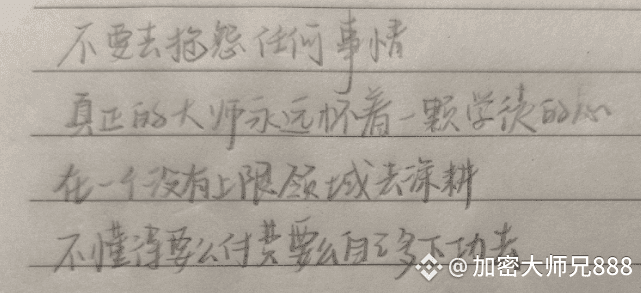 不要去抱怨任何事情
真正的大师永远怀着一颗学徒的心
在一个没有上限领域去深耕
不懂得要么付费要么自己多下功夫
@加密大师兄888